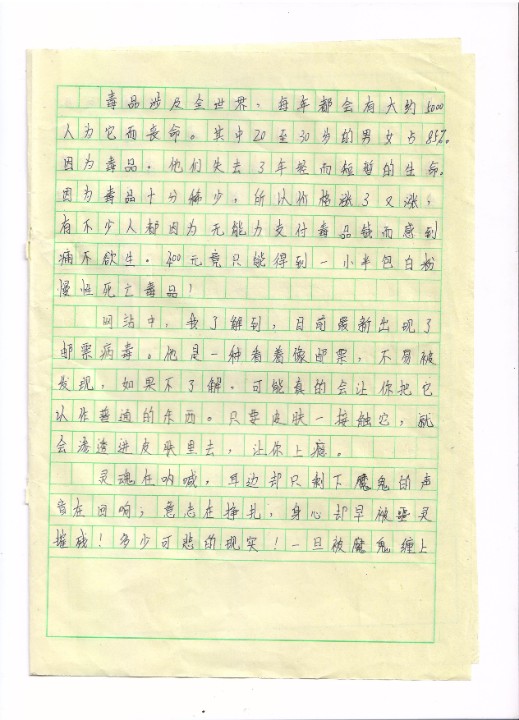 毒品涉及全世界，每年都会有大约5000
人为它而丧命。其中20至30岁的男女占85%。
因为毒品，他们失去了年轻而短暂的生命。
因为毒品十分稀少，所以价格涨了又涨，
有不少人都因为无能力支付毒品钱而感到
痛不欲生。400元竟只能得到一小半包白粉
慢性死亡毒品！
网站中，我了解到，目前最新出现了
邮票病毒。他是一种看着像邮票，不易被
发现，如果不了解，可能真的会让你把它
认作普通的东西。只要皮肤一接触它，就
会渗透进皮肤里去，让你上瘾。
灵魂在呐喊，耳边却只剩下魔鬼的声
音在回响；意志在挣扎，身心却早被恶灵
摧残！多少可悲的现实！一旦被魔鬼缠上